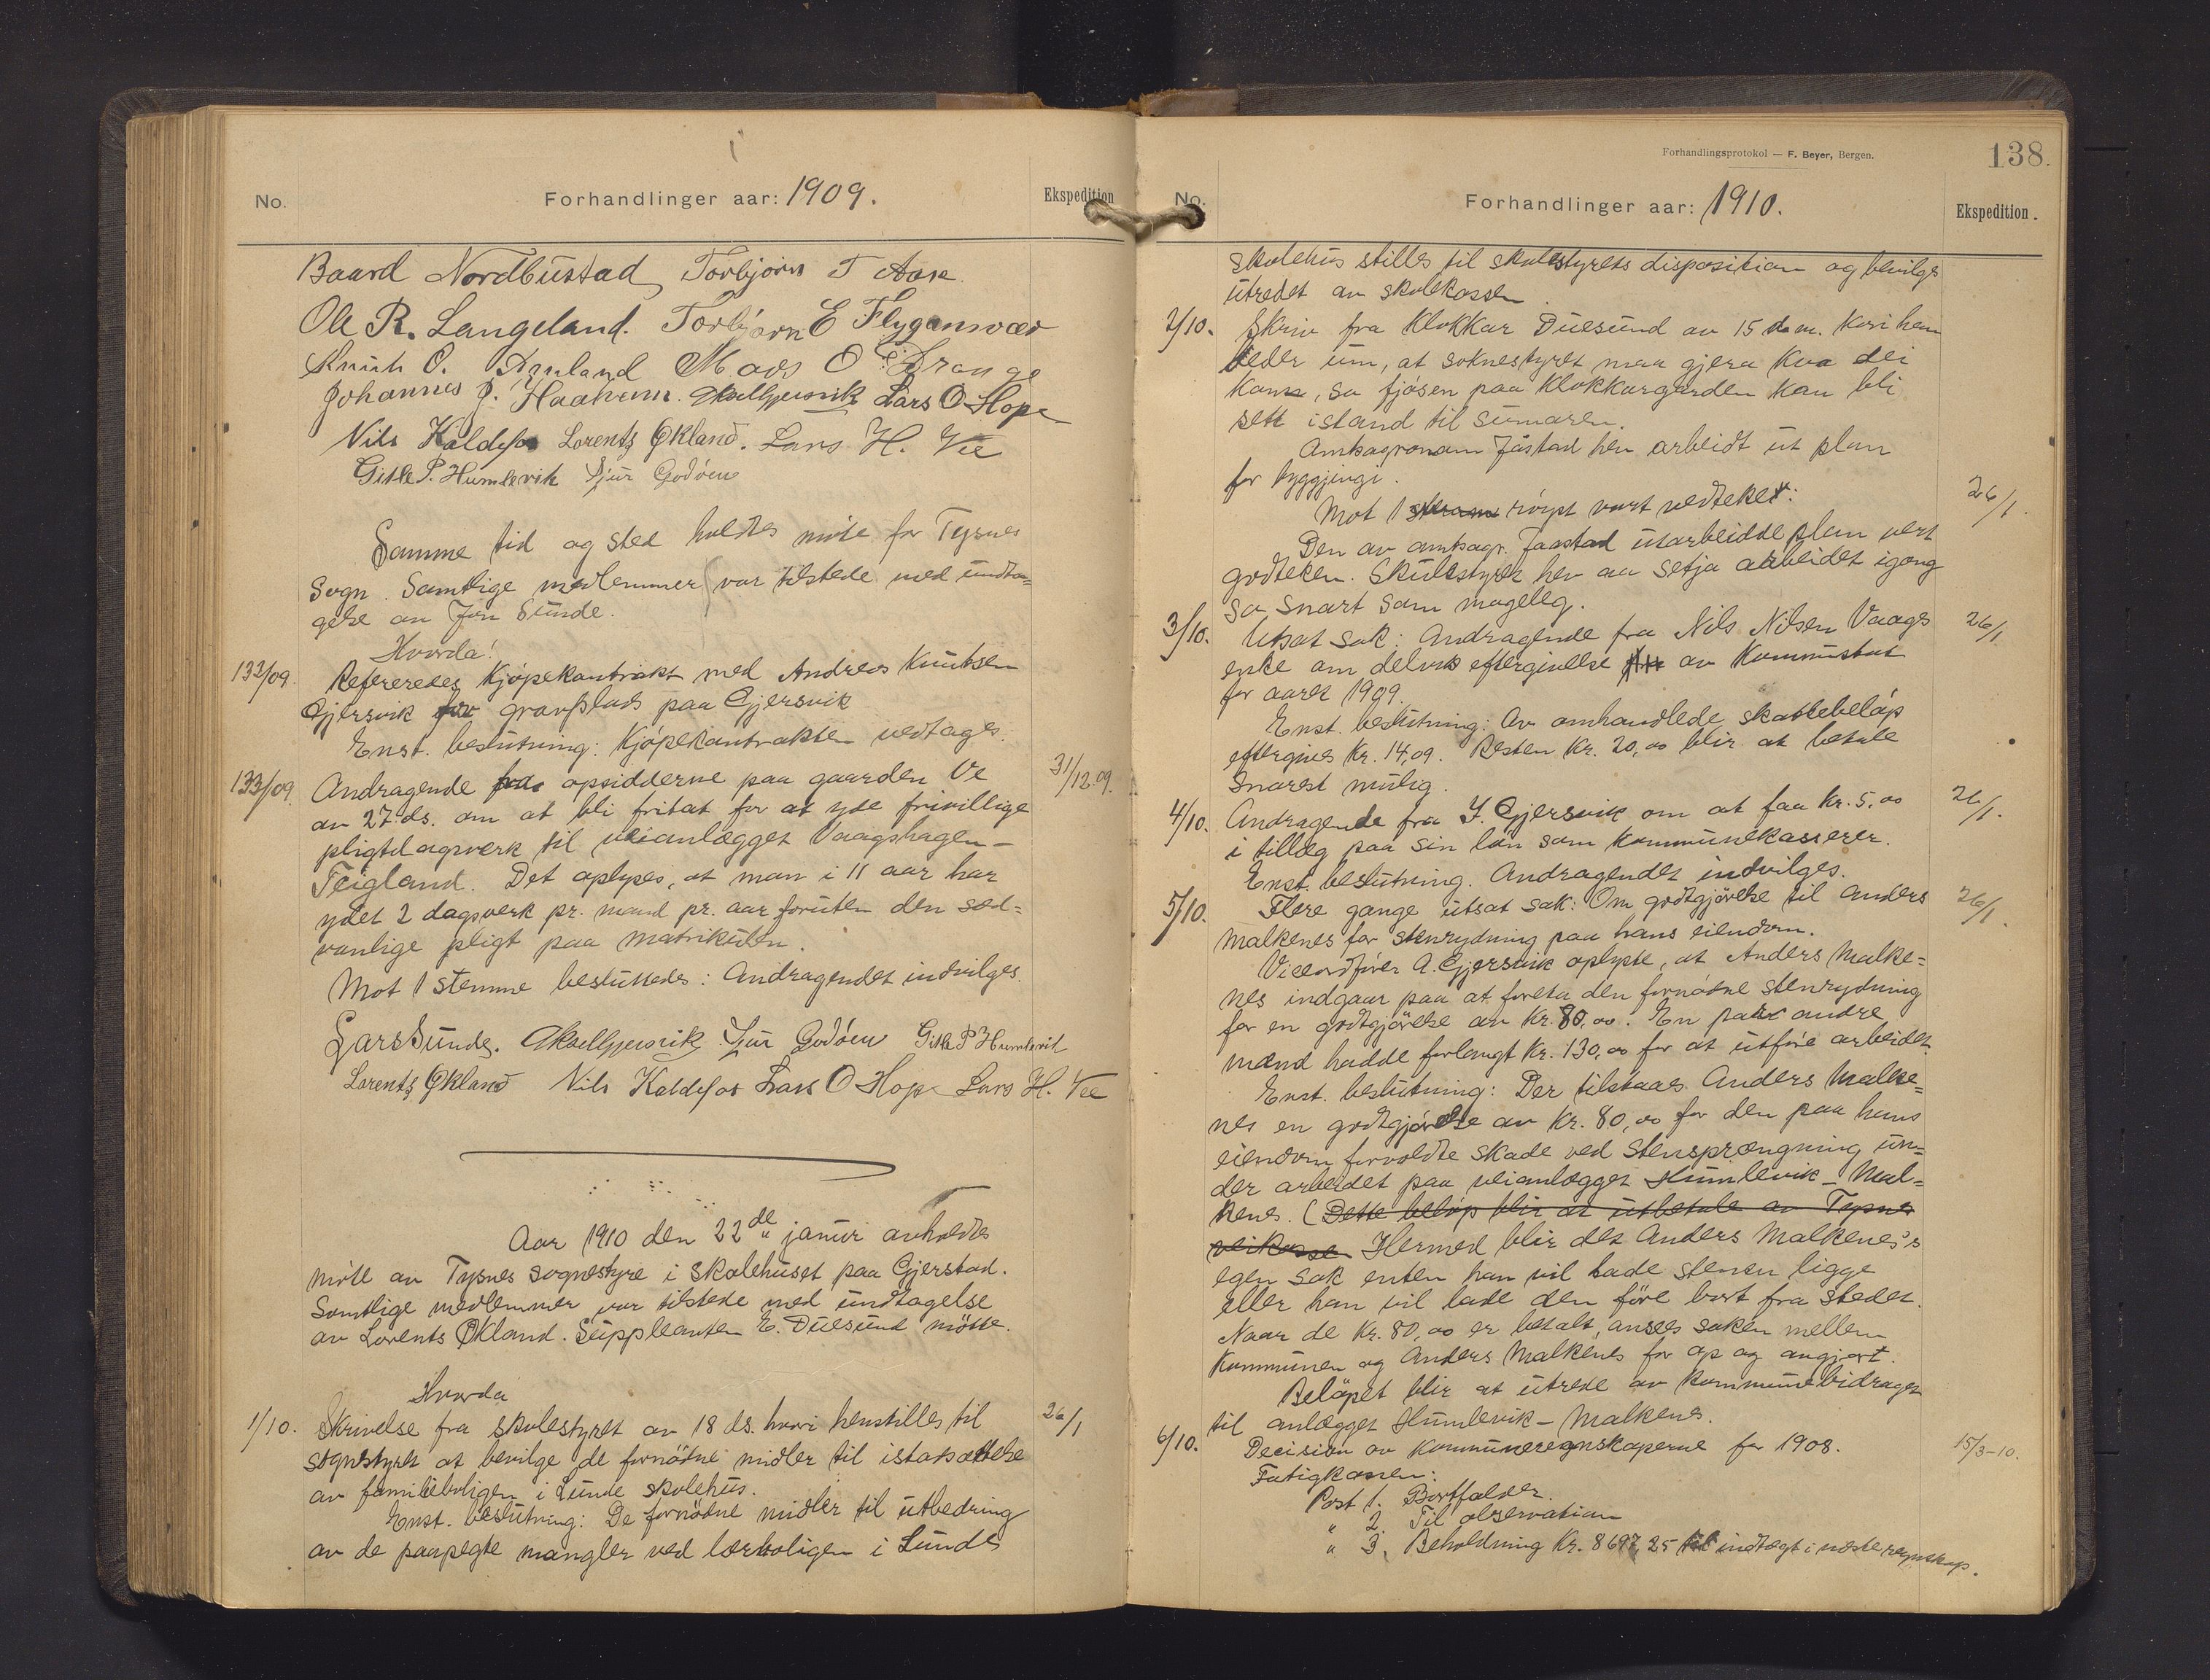 No. Forhandlinger aar: 1909. Ekspedition
Baard Nordbustad, Torbjørn T Aase
Ole R. Langeland. Torbjørn E Flygansvær
Knut O. Amland Mads O Drange
Johannes J. Haaheim. AkselGjersvik Lars O Hope
Nils Koldefos Lorentz Økland. Lars H. Vee
Gitle P. Humlevik Sjur Godøen
Samme tid og sted holdtes møte for Tysnes
sogn. Samtlige medlemmer var tilstede med undta-
gelse av Jon Sunde.
Hvorda:
132/09. Refereredes kjøpekontrakt med Andreas Knutsen
Gjersvik for gravplads paa Gjersvik
Enst. beslutning: Kjøpekontrakten vedtages.
133/09. Andragende fra opsidderne paa gaarden Ve 31/12.09.
av 27. ds. om at bli fritat for at yde frivillige
pligtdagsverk til veianlægget Vaagshagen -
Teigland. Det oplyses, at man i 11 aar har
ydet 2 dagsverk pr. mand pr. aar foruten den sæd=
vanlige pligt paa matrikulen.
Mot 1 stemme besluttedes: Andragendet indvilges.
Lars Sunde. AkselGjersvik Sjur Godøen Gitle P Humlevik
Lorentz Økland Nils Koldefos Lars O Hope Lars H. Vee
Aar 1910 den 22de januar avholdtes
møte av Tysnes sognestyre i skolehuset paa Gjerstad.
Samtlige medlemmer var tilstede med undtagelse
av Lorents Økland. Suppleanten E. Duesund møtte.
Hvorda
1/10. Skrivelse fra skolestyret av 18 ds. hvori henstilles til 26/1
sognestyret at bevilge de fornødne midler til istandsættelse
av familieboligen i Lunde skolehus.
Enst. beslutning: De fornødne midler til utbedring
av de paapegte mangler ved lærboligen i Lunde
Forhandlingsprotokol — F. Beyer, Bergen. 138.
No. Forhandlinger aar: 1910. Ekspedition.
skolehus stilles til skolestyrets disposition og bevilges
utredet av skolekassen.
2/10. Skriv fra klokkar Duesund av 15 d.m. kori han
beder um, at soknestyret maa gjera kva dei
kann, so fjøsen paa klokkargarden kan bli
sett istand til sumaren.
Amtsagronom Jåstad hev arbeidt ut plan
for byggjingi.
Mot 1 røyst vart vedteket: 26/1.
Den av amtsagr. Jaastad utarbeidde plan vert
godteken. Skulestyret hev aa setja arbeidet igong
so snart som mogeleg.
3/10. Utsat sak: Andragende fra Nils Nilsen Vaags 26/1
enke om delvis eftergivelse av kommuneskat
for aaret 1909.
Enst. beslutning: Av omhandlede skattebeløp
eftergives kr. 14,09. Resten kr. 20,00 blir at betale
snarest mulig.
4/10. Andragende fra J. Gjersvik om at faa kr. 5,00 26/1.
i tillæg paa sin løn som kommunekasserer.
Enst. beslutning. Andragendet indvilges.
5/10. Flere gange utsat sak: Om godtgjørelse til Anders 26/1.
Malkenes for stenrydning paa hans eiendom.
Viceordfører A. Gjersvik oplyste, at Anders Malke=
nes indgaar paa at foreta den fornødne stenrydning
for en godtgjørelse av kr. 80,00. En paar andre
mænd hadde forlangt kr. 130,00 for at utføre arbeidet.
Enst. beslutning: Der tilstaaes Anders Malke=
nes en godtgjørelse av kr. 80,00 for den paa hans
eiendom forvoldte skade ved stensprængning un=
der arbeidet paa veianlægget Humlevik - Mal=
kenes. (Dette beløp blir at utbetale av Tysnes
veikasse. Hermed blir det Anders Malkenes's
egen sak enten han vil lade stenen ligge
eller han vil lade den føre bort fra stedet.
Naar de kr. 80,00 er betalt, ansees saken mellem
kommunen og Anders Malkenes for op og avgjort.
Beløpet blir at utrede av kommunebidraget
til anlægget Humlevik - Malkenes.
6/10. Decision av kommuneregnskaperne for 1908. 15/3-10.
Fatigkassen:
Post 1. Bortfalder.
" 2. Til observation
" 3. Beholdning kr. 8697,25 til indtægt i næste regnskap.